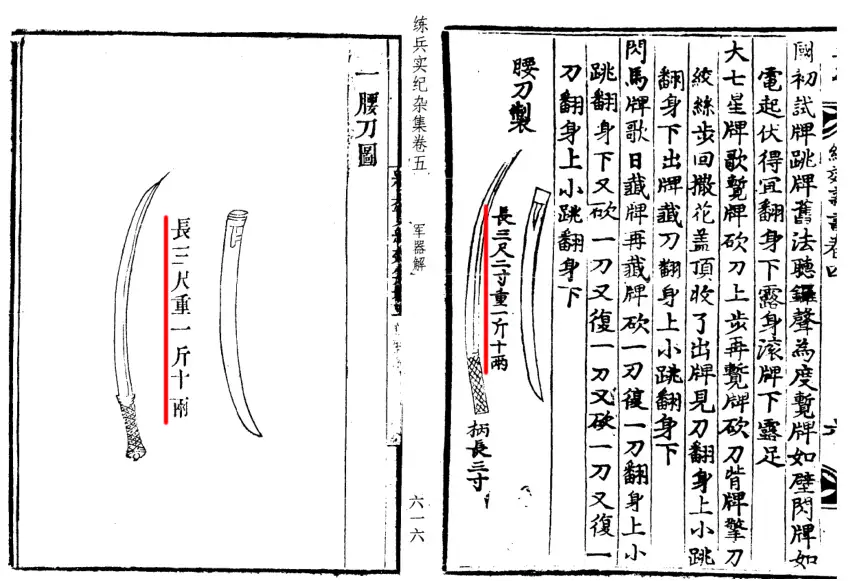 紀效新書卷四
六
國初試牌跳牌舊法聽鑼聲為度覽牌如壁閃牌如
電起伏得宜翻身下露身滾牌下露足
大七星牌歌覽牌砍刀上步再覽牌砍刀背牌擎刀
絞絲步回撒花蓋頂收了出牌見刀翻身上小跳
翻身下出牌藏刀翻身上小跳翻身下
閃馬牌歌曰藏牌再藏牌砍一刀復一刀翻身上小
跳翻身下又砍一刀又復一刀又砍一刀又復一
刀翻身上小跳翻身下
腰刀製
長三尺二寸重一斤十兩
柄長三寸
练兵实纪杂集卷五
军器解
六一六
一腰刀圖
長三尺重一斤十兩